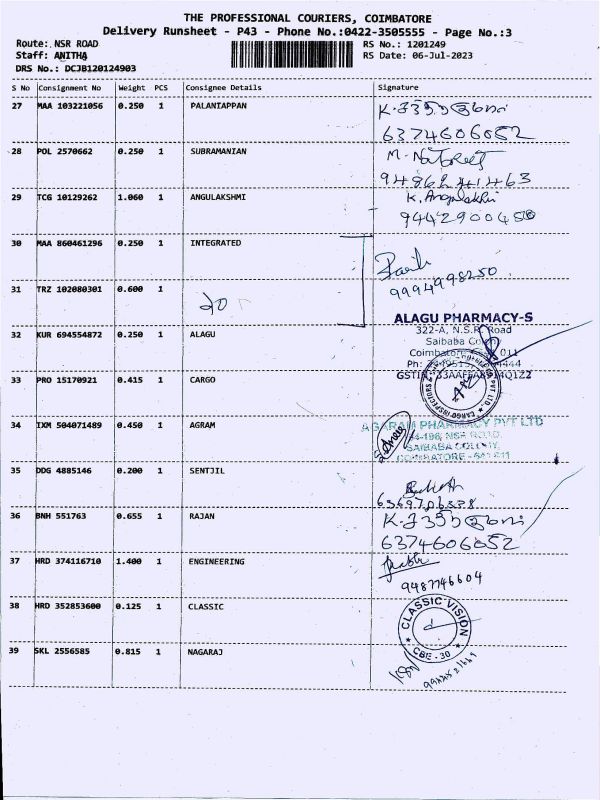 THE PROFESSIONAL COURIERS, COIMBATORE
Delivery Runsheet - P43 - Phone No.:0422-3505555 - Page No.:3
Route: NSR ROAD
RS No.: 1201249
Staff: ANITHA
RS Date: 06-Jul-2023
DRS No.: DCJB120124903
S No Consignment No Weight PCS Consignee Details Signature
27 MAA 103221056 0.250 1 PALANIAPPAN
6374606052
28 POL 2570662 0.250 1 SUBRAMANIAN M.
29 TCG 10129262 1.060 1 ANGULAKSHMI K.
9442900450
30 MAA 860461296 0.250 1 INTEGRATED
9994998250
31 TRZ 102080301 0.600 1
ALAGU PHARMACY-S
322-A, N.S.R. Road
Saibaba Colony
32 KUR 694554872 0.250 1 ALAGU
33 PRO 15170921 0.415 1 CARGO
34 IXM 504071489 0.450 1 AGRAM
PHARMACY PVT LTD
NSR ROAD,
SAIBABA COLONY,
35 DDG 4885146 0.200 1 SENTJIL
36 BNH 551763 0.655 1 RAJAN
6374606052
37 HRD 374116710 1.400 1 ENGINEERING
9487746604
38 HRD 352853600 0.125 1 CLASSIC
CLASSIC VISION
CBE - 30
39 SKL 2556585 0.815 1 NAGARAJ